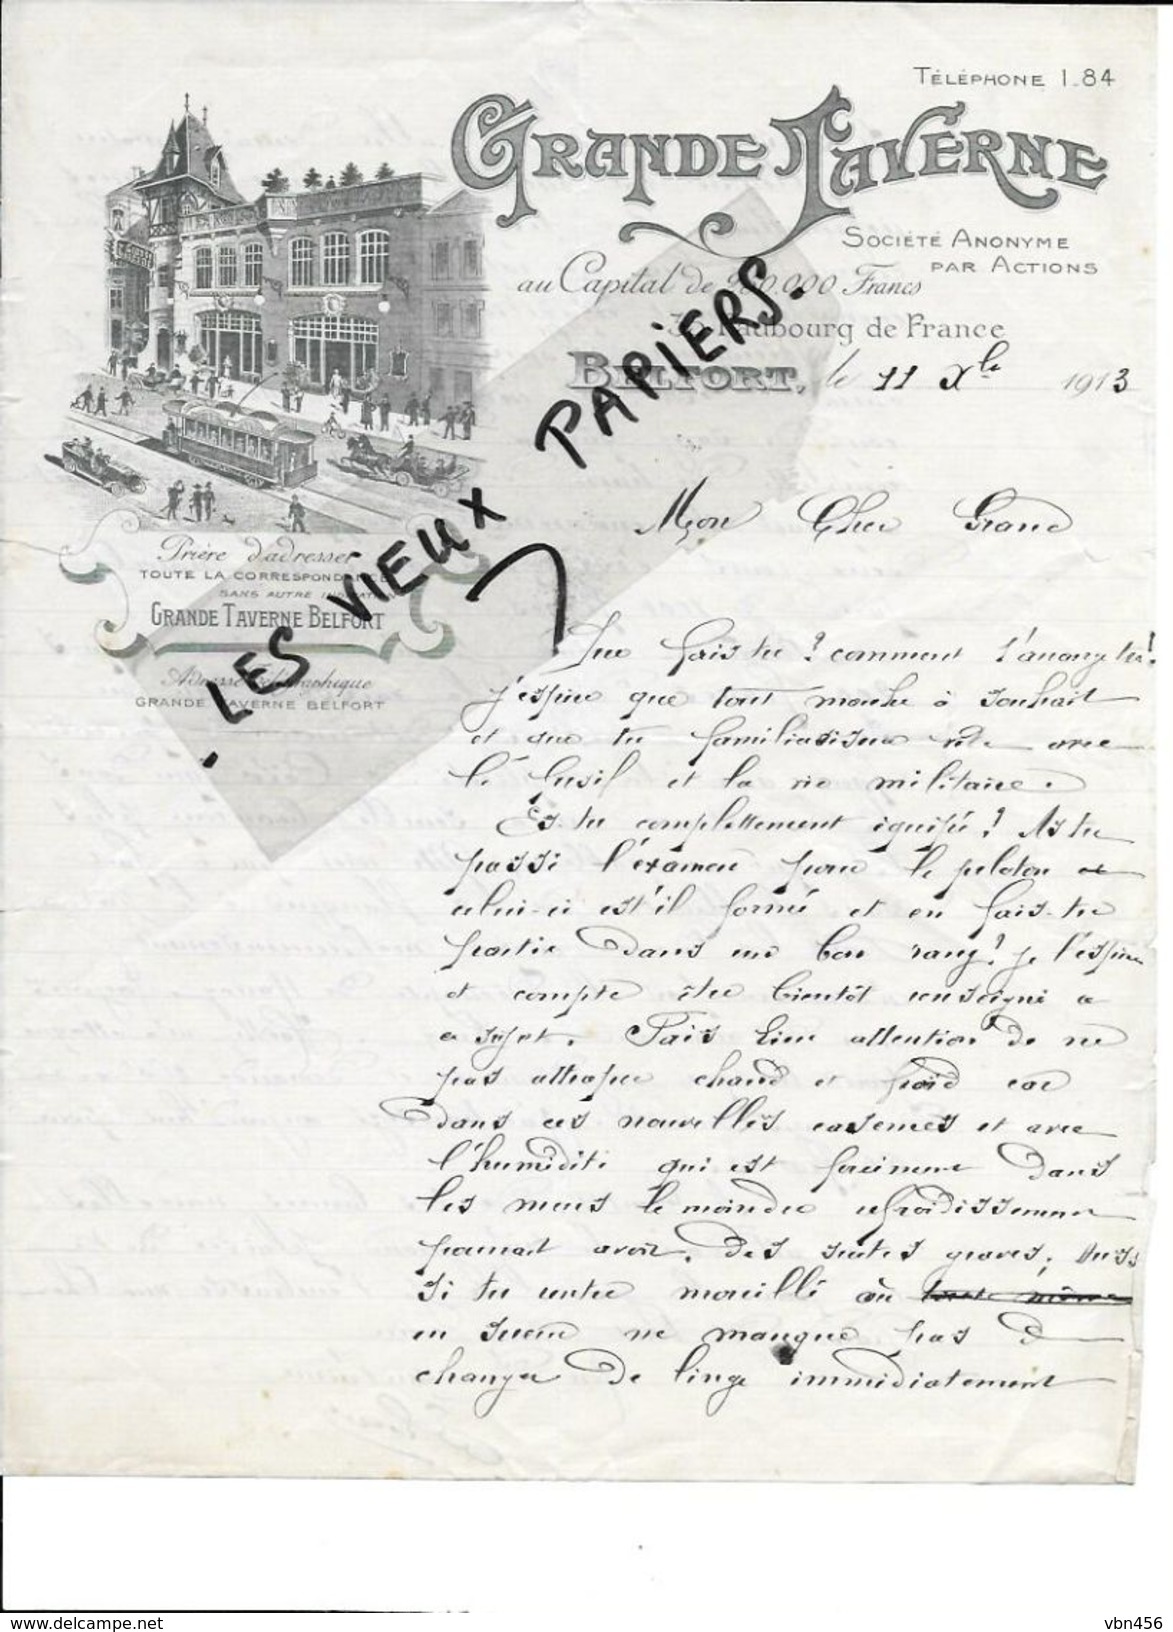 TÉLÉPHONE 1.84
GRANDE TAVERNE
SOCIÉTÉ ANONYME
PAR ACTIONS
au Capital de 000 Francs
Faubourg de France
BELFORT, le 11 Xbre 1913
Prière d'adresser
TOUTE LA CORRESPONDANCE
SANS AUTRE
GRANDE TAVERNE BELFORT
Adresse Télégraphique
GRANDE TAVERNE BELFORT
. LES VIEUX PAPIERS.
Mon Cher Grand
Que fais tu ? comment t'arranges tu ?
j'espère que tout marche à souhait
et que tu familiarises vite avec
le fusil et la vie militaire.
Es. tu complettement équipé ? As tu
passé l'examen pour le peloton
celui-ci est'il formé et en fais-tu
partie dans un bon rang ? je l'espère
et compte être bientôt renseigné a
ce sujet. Fais bien attention de ne
pas attraper chaud et froid car
dans ces nouvelles casernes et avec
l'humidité qui est forcément dans
les murs le moindre refroidissement
pourrait avoir des suites graves ; aussi
si tu rentre mouillé ou
en sueur ne manque pas de
changer de linge immédiatement
www.delcampe.net
vbn456